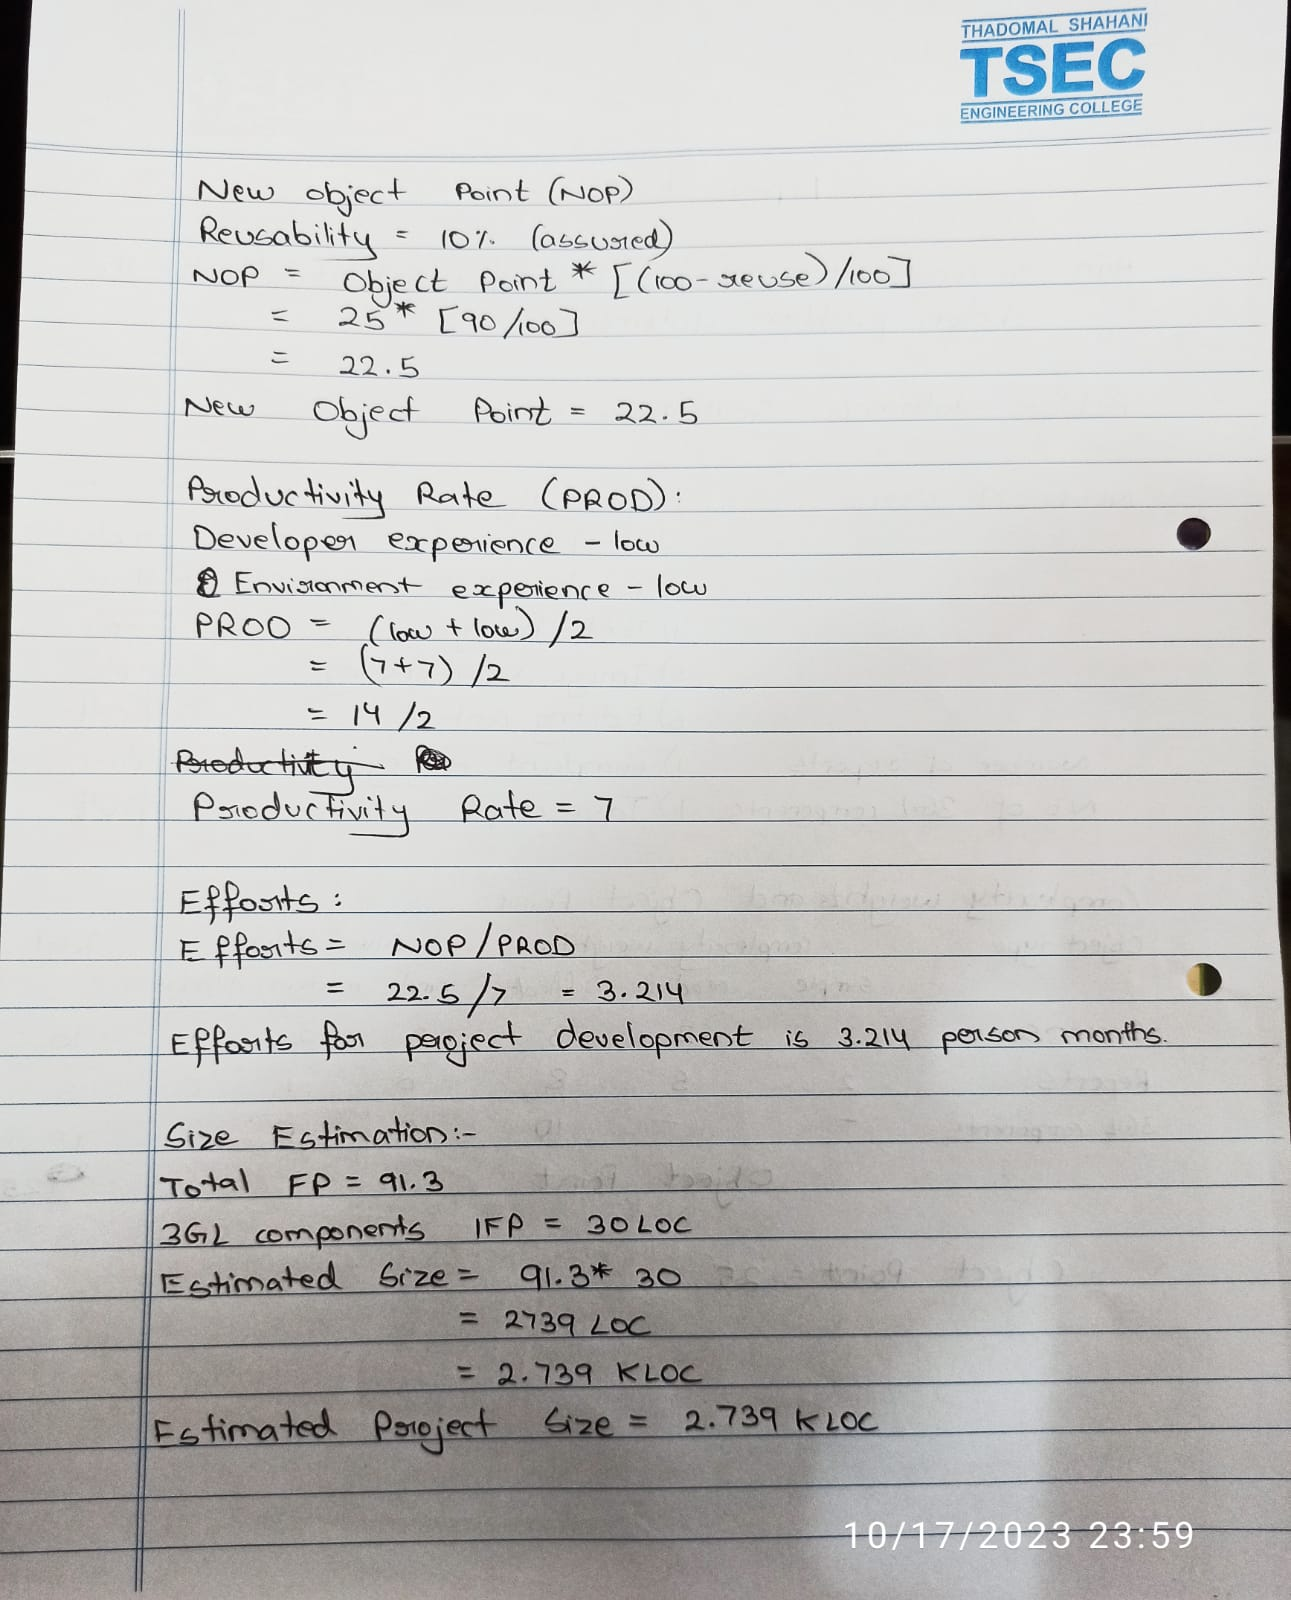 THADOMAL SHAHANI
TSEC
ENGINEERING COLLEGE
New object Point (NOP)
Reusability = 10% (assumed)
NOP = Object Point * [(100-reuse)/100]
= 25 * [90/100]
= 22.5
New Object Point = 22.5
Productivity Rate (PROD):
Developer experience - low
Environment experience - low
PROD = (low + low) /2
= (7+7) /2
= 14 /2
Productivity
Productivity Rate = 7
Efforts:
Efforts = NOP/PROD
= 22.5/7 = 3.214
Efforts for project development is 3.214 person months.
Size Estimation:-
Total FP = 91.3
3GL components 1FP = 30 LOC
Estimated Size = 91.3* 30
= 2739 LOC
= 2.739 KLOC
Estimated Project Size = 2.739 KLOC
10/17/2023 23:59